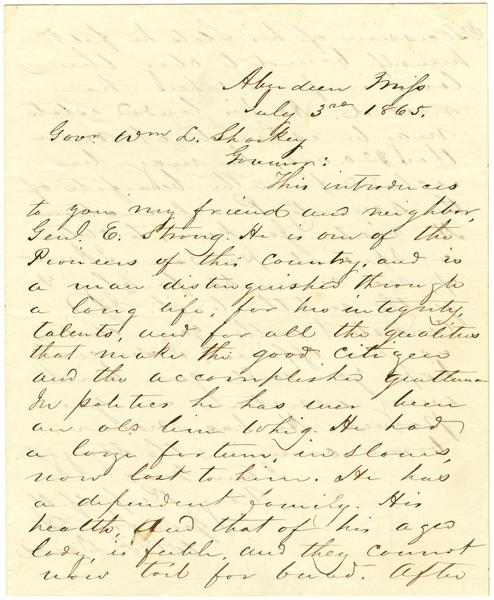 Aberdeen Miss
July 3rd 1865.
Govr. Wm L. Sharkey
Governor:
This introduces
to you my friend and neighbor,
Genl. E. Strong. He is one of the
Pioneers of this country, and is
a man distinguished through
a long life, for his integrity,
talents, and for all the qualities
that make the good citizen
and the accomplished gentleman
In politics he has ever been
an old line Whig. He had
a large fortune, in slaves,
now lost to him. He has
a dependent family. His
health, and that of his aged
lady, is feeble, and they cannot
now toil for bread. After